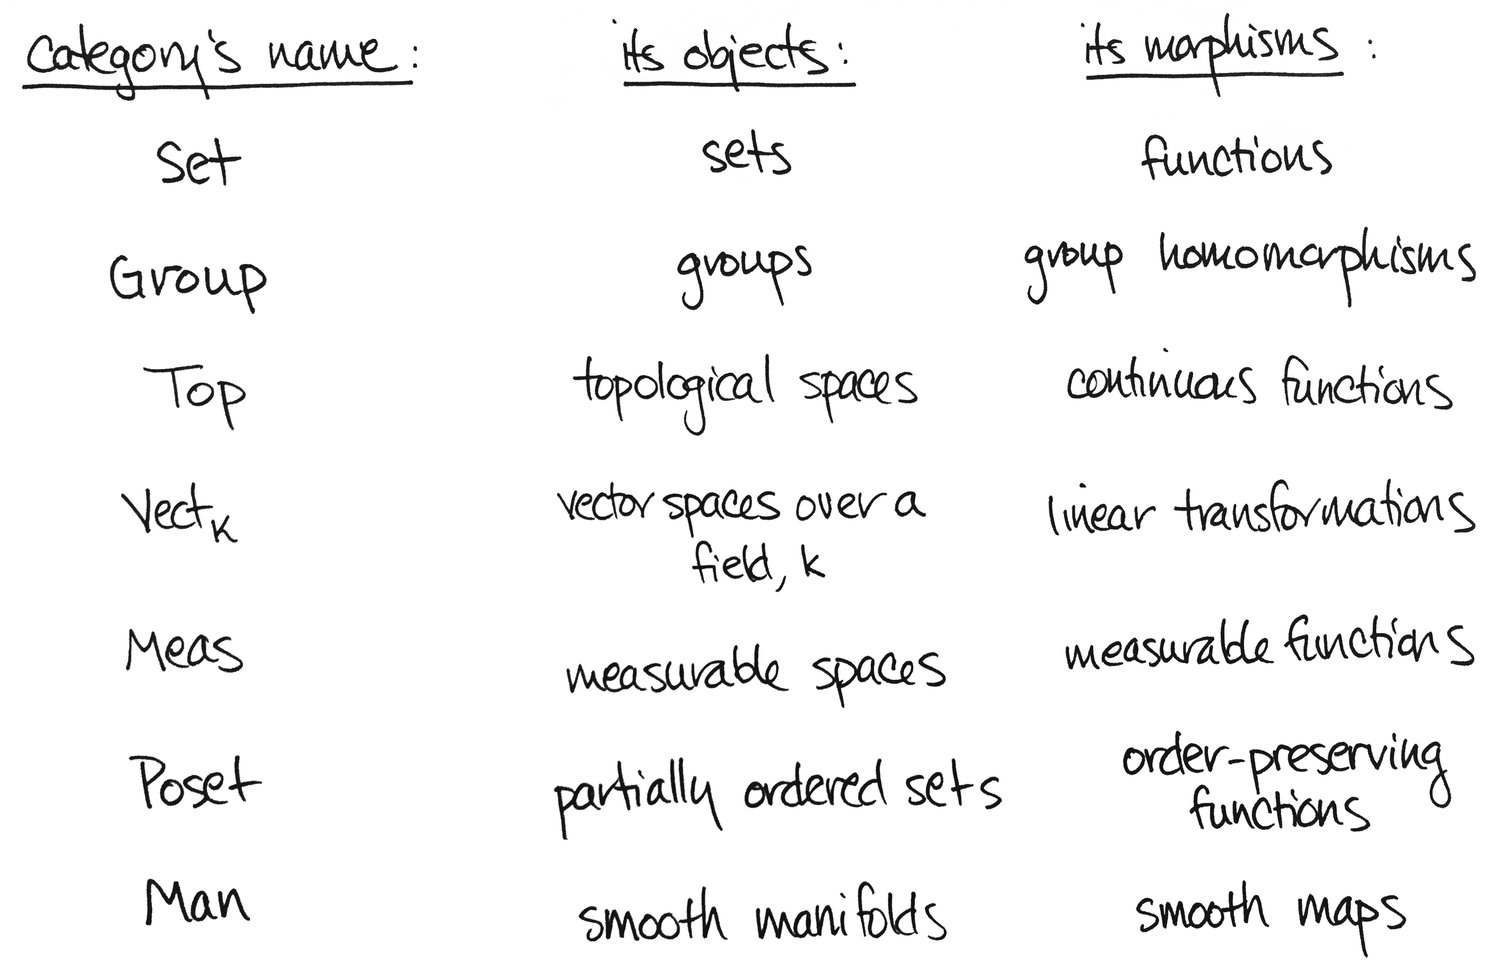 Category's name: its objects: its morphisms:
Set sets functions
Group groups group homomorphisms
Top topological spaces continuous functions
Vectₖ vector spaces over a linear transformations
field, k
Meas measurable spaces measurable functions
Poset partially ordered sets order-preserving
functions
Man smooth manifolds smooth maps